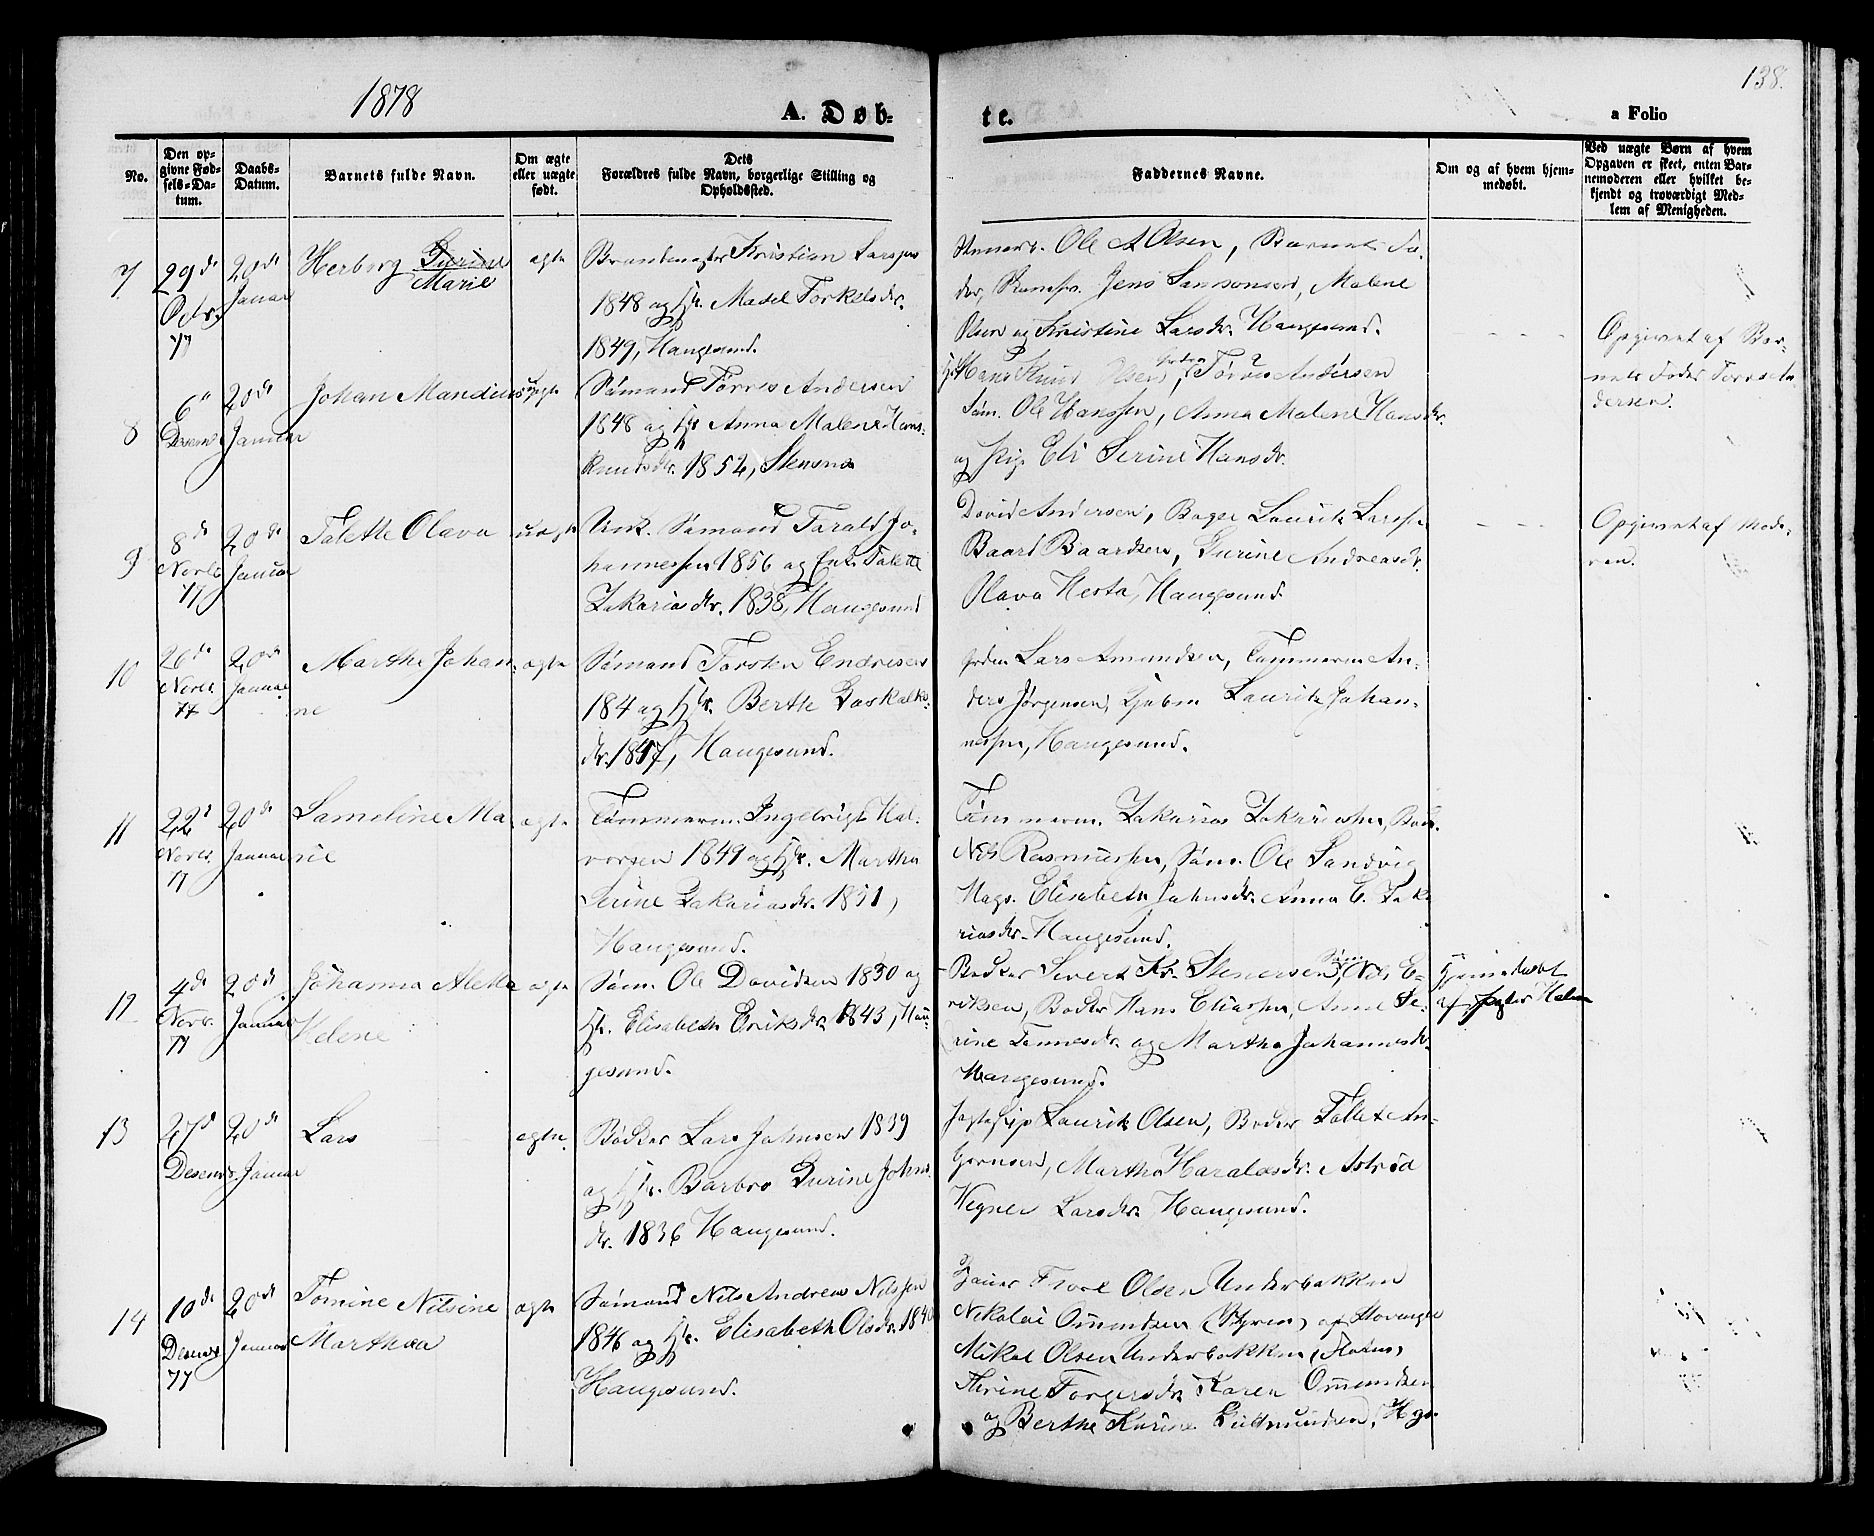 1878
A. Døb-
te.
138.
a Folio
No.
Den op-
givne Fød-
sels-Da-
tum.
Daabs-
Datum.
Barnets fulde Navn.
Om ægte
eller uægte
født.
Dets
Forældres fulde Navn, borgerlige Stilling og
Opholdssted.
Faddernes Navne.
Om og af hvem hjem-
medøbt.
Ved uægte Børn af hvem
Opgaven er skeet, enten Bar-
nemoderen eller hvilket be-
kjendt og troværdigt Med-
lem af Menigheden.
7
29de
Octr.
77
20de
Januar
Herborg Gurine
Marie
ægte
Kristian Larssen
1848 og Hr. Madel Torkelsdr.
1849, Haugesund.
Ole A Olsen, Barnets Fa-
der, Jens Samsonsen, Malene
Olsen og Kristine Larsdr. Haugesund.
8
6te
Desem
20de
Januar
Johan Mandius
uægte
Sømand Tørres Andersen
1848 og Anna Malene Hans-
Knudsdr. 1852, Stensnæs
Hans Knud Olsen, Tørres Andersen
Søm. Ole Hanssen, Anna Malene Hansdr.
og Pige Eli Serine Hansdr.
Opgivent af Bar-
nets Fader Tørres An-
dersen.
9
8de
Novbr
77
20de
Januar
Talette Olava
uægte
Unk. Sømand Tarald Jo-
hannessen 1856 og Enke Talette
Zakariasdr. 1838, Haugesund
David Andersen, Bager Lauritz Larssen
Baard Baardsen, Gurine Andreasdr.
Olava Hesta, Haugesund.
Opgivent af Mode-
ren.
10
26de
Novbr.
77
20de
Januar
Marthe Johan-
ne
ægte
Sømand Torsten Endresen
184 og Hr. Berthe Gaskalks-
dr. 1847, Haugesund.
Lars Amundsen, Tømmerm. An-
ders Jørgensen, Lauritz Johan-
nessen, Haugesund.
11
22d
Novbr.
77
20de
Januar
Sameline Ma
rie
ægte
Tømmerm. Ingebrigt Hal-
vorsen 1849 og Hr. Martha
Serine Zakariasdr. 1851,
Haugesund.
Tømmerm. Zakarias Zakariassen,
Nils Rasmussen, Søm. Ole Sandvig
Hags. Elisabeth Johnsdr. Anna E. Zaka
riasdr. Haugesund.
12
4de
Novbr.
77
20de
Januar
Johanna Aletta
Helene
ægte
Søm. Ole Davidsen 1830 og
Hr. Elisabeth Eriksdr. 1843, Hau-
gesund.
Bødker Sivert Kr. Stenersen, Nils E-
riksen, Bødker Hans Eliassen, Anne Se-
rine Tønnesdr. og Martha Johannesdr.
Haugesund.
Hjemmedøbt
af
13
27d
Desem
20de
Januar
Lars
ægte.
Bødker Lars Johnsen 1839
og Hr. Barbro Gurine Johns
dr. 1836 Haugesund.
Lauritz Olsen, Bødker
Martha Haraldsdr. Astrid
Wegner Larsdr. Haugesund.
14
10de
Desembr
77
20de
Januar
Tomine Nilsine
Marthea
ægte
Sømand Nils Andreas Nilssen
1846 og Hr. Elisabeth Olsdr. 1840
Haugesund.
Olsen Underbakken
Nikolai Omundsen (Styrm. af Stavanger
Mikal Olsen Underbakken,
Torgersdr. Karen Omundsen
og Berthe Karine Gudmundsen, Hgs.